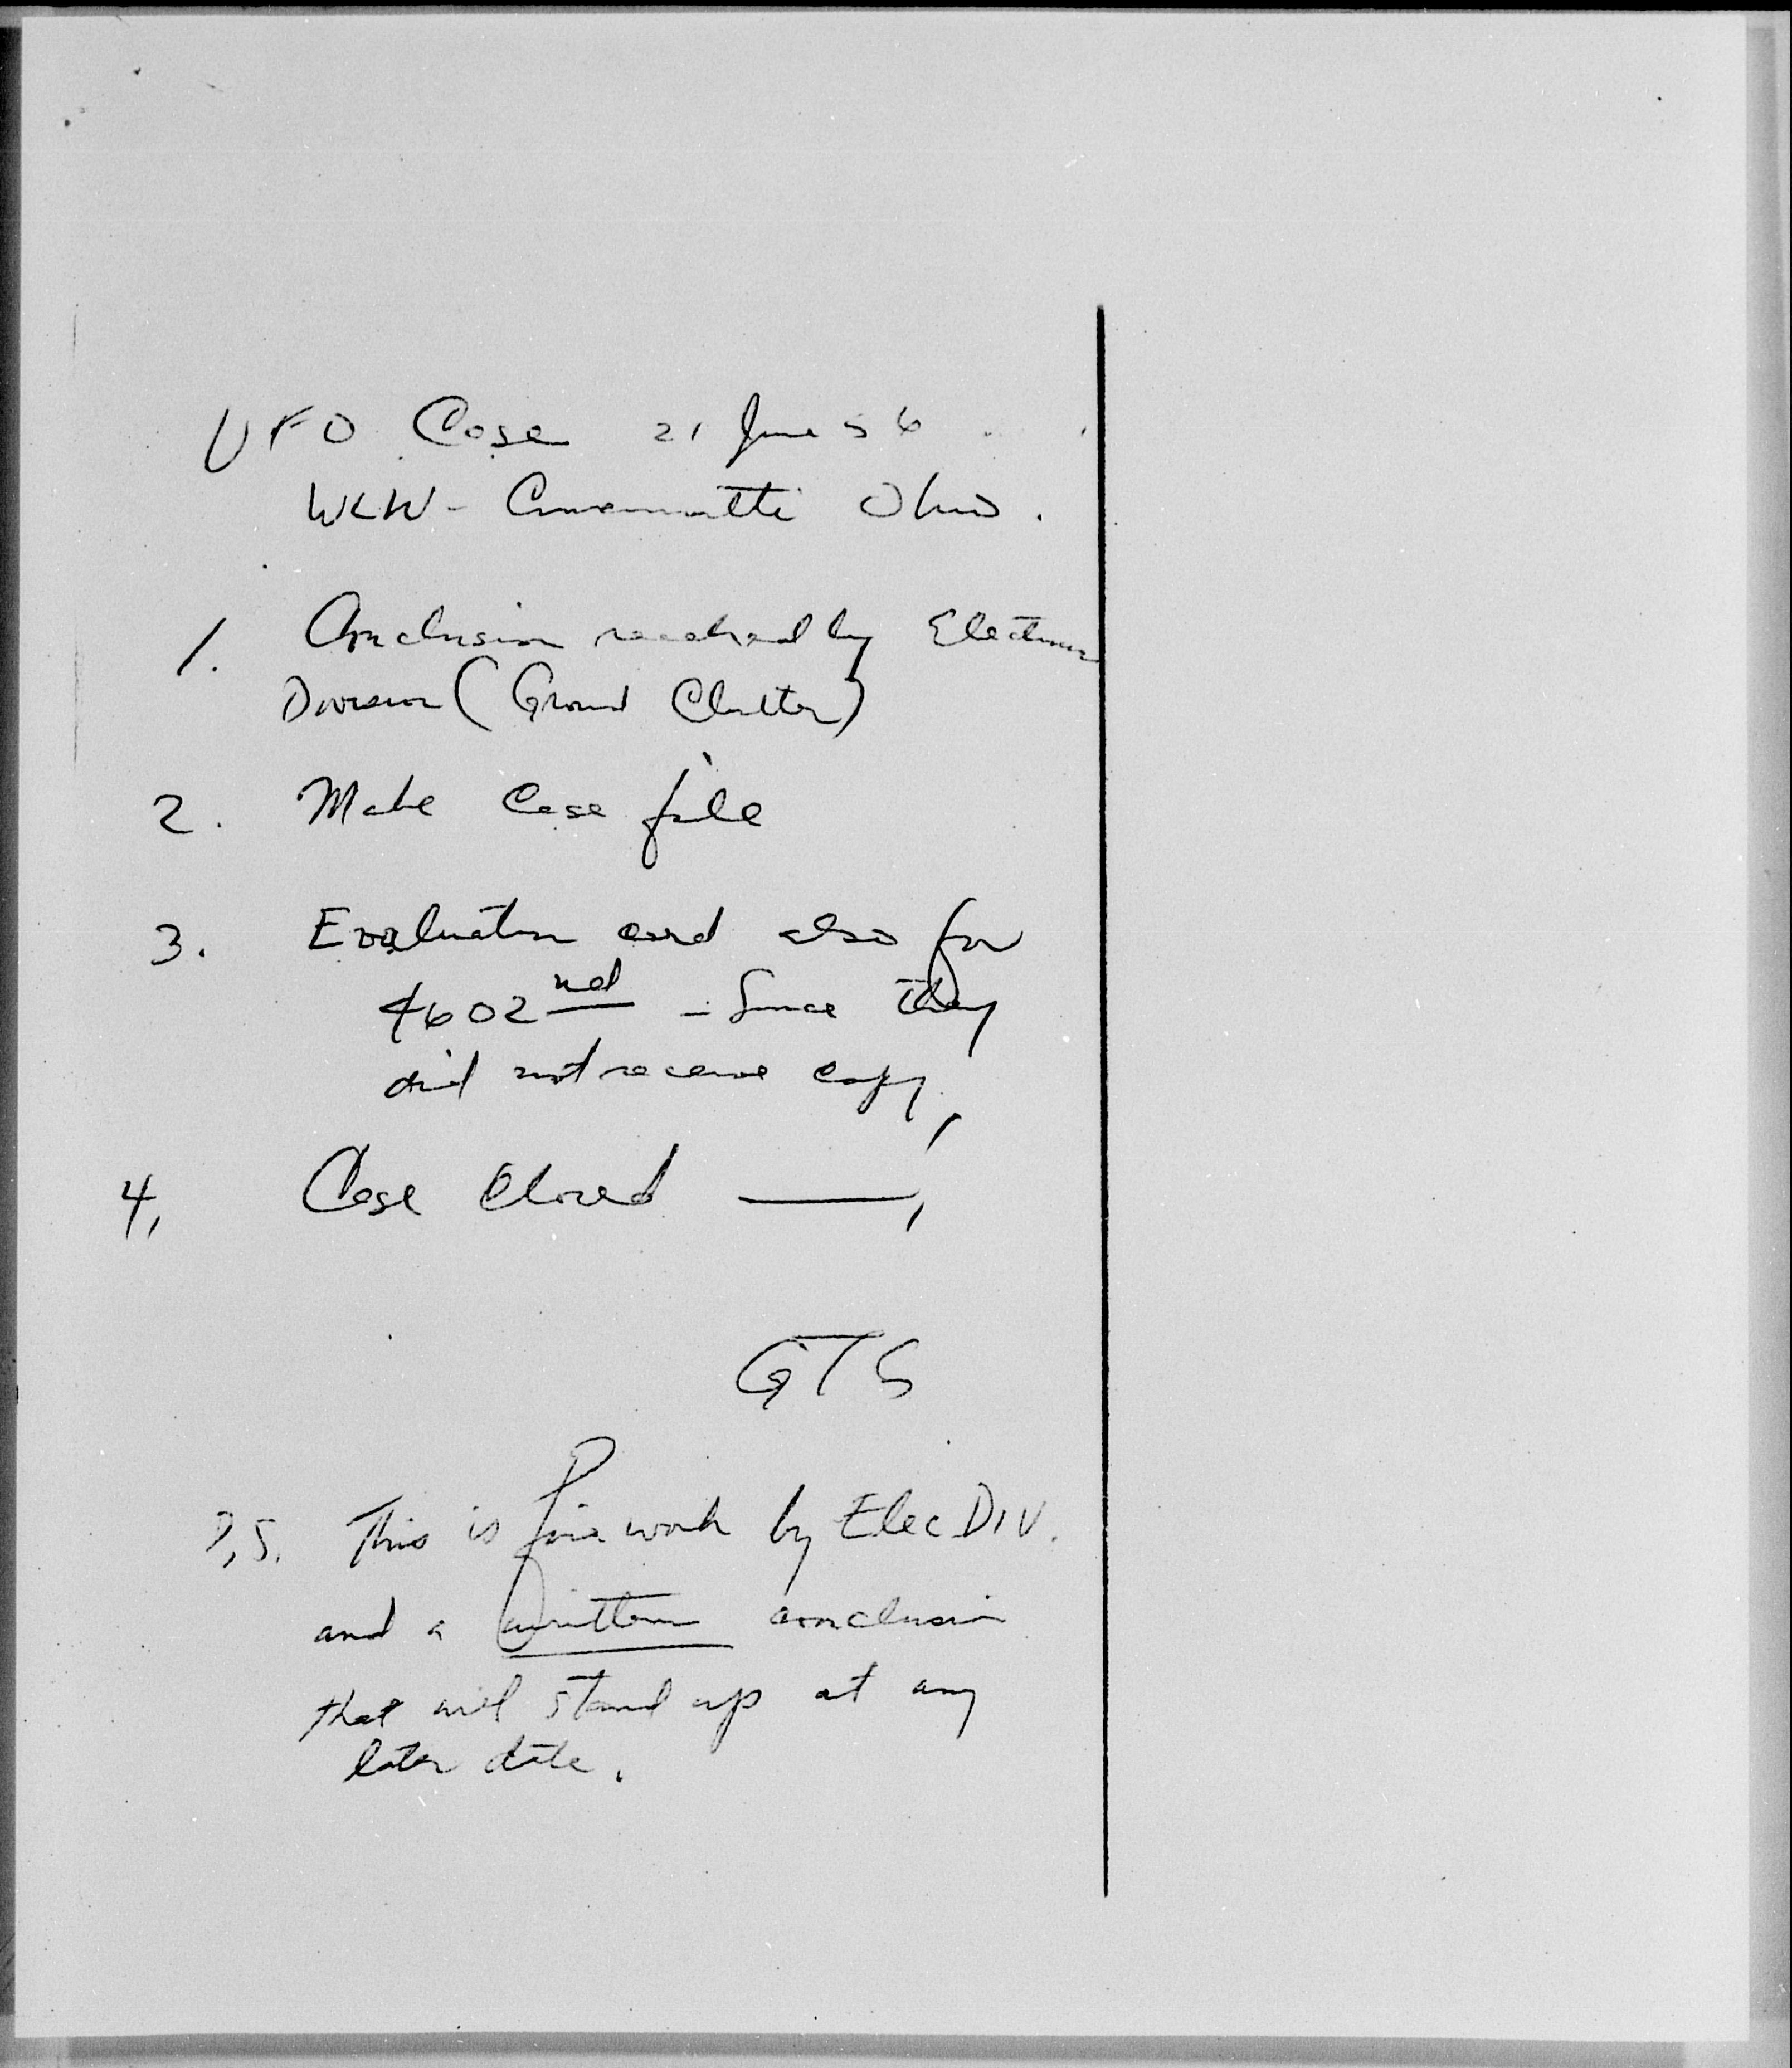 UFO Case 21 June 56
WLW - Cincinnatti Ohio.
1. Conclusion reached by Electronic
Division (Ground Clutter)
2. Make Case file
3. Evaluation card also for
4602nd - Since they
did not receive copy,
4, Case Closed —,
GTG
P,S. This is fine work by Elec DIV.
and a written conclusion
that will stand up at any
later date.